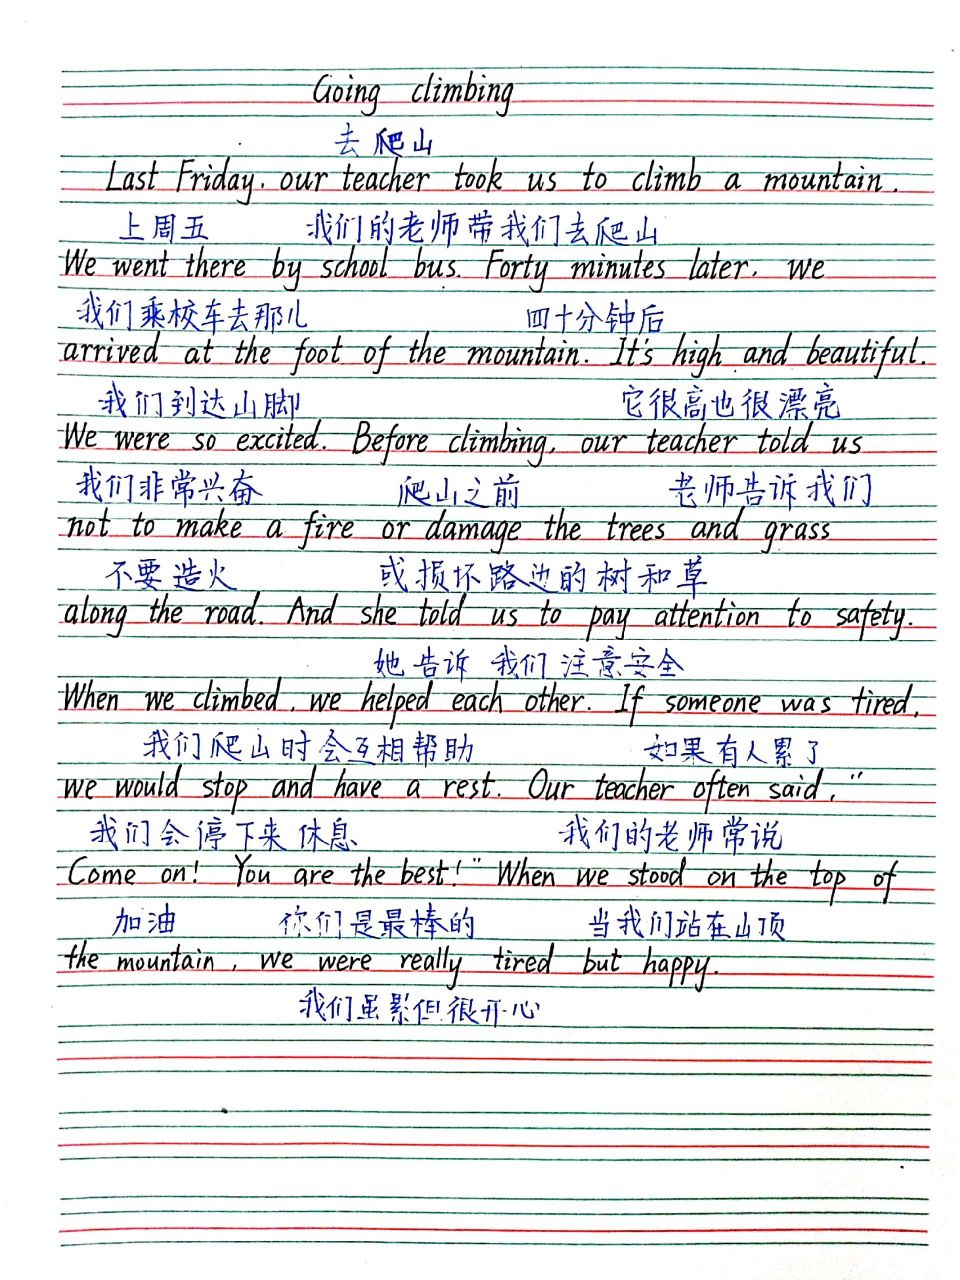 Going climbing
去爬山
Last Friday, our teacher took us to climb a mountain.
上周五 我们的老师带我们去爬山
We went there by school bus. Forty minutes later, we
我们乘校车去那儿 四十分钟后
arrived at the foot of the mountain. It's high and beautiful.
我们到达山脚 它很高也很漂亮
We were so excited. Before climbing, our teacher told us
我们非常兴奋 爬山之前 老师告诉我们
not to make a fire or damage the trees and grass
不要造火 或损坏路边的树和草
along the road. And she told us to pay attention to safety.
她告诉我们注意安全
When we climbed, we helped each other. If someone was tired,
我们爬山时会互相帮助 如果有人累了
we would stop and have a rest. Our teacher often said, "
我们会停下来休息 我们的老师常说
Come on! You are the best!" When we stood on the top of
加油 你们是最棒的 当我们站在山顶
the mountain, we were really tired but happy.
我们虽累但很开心